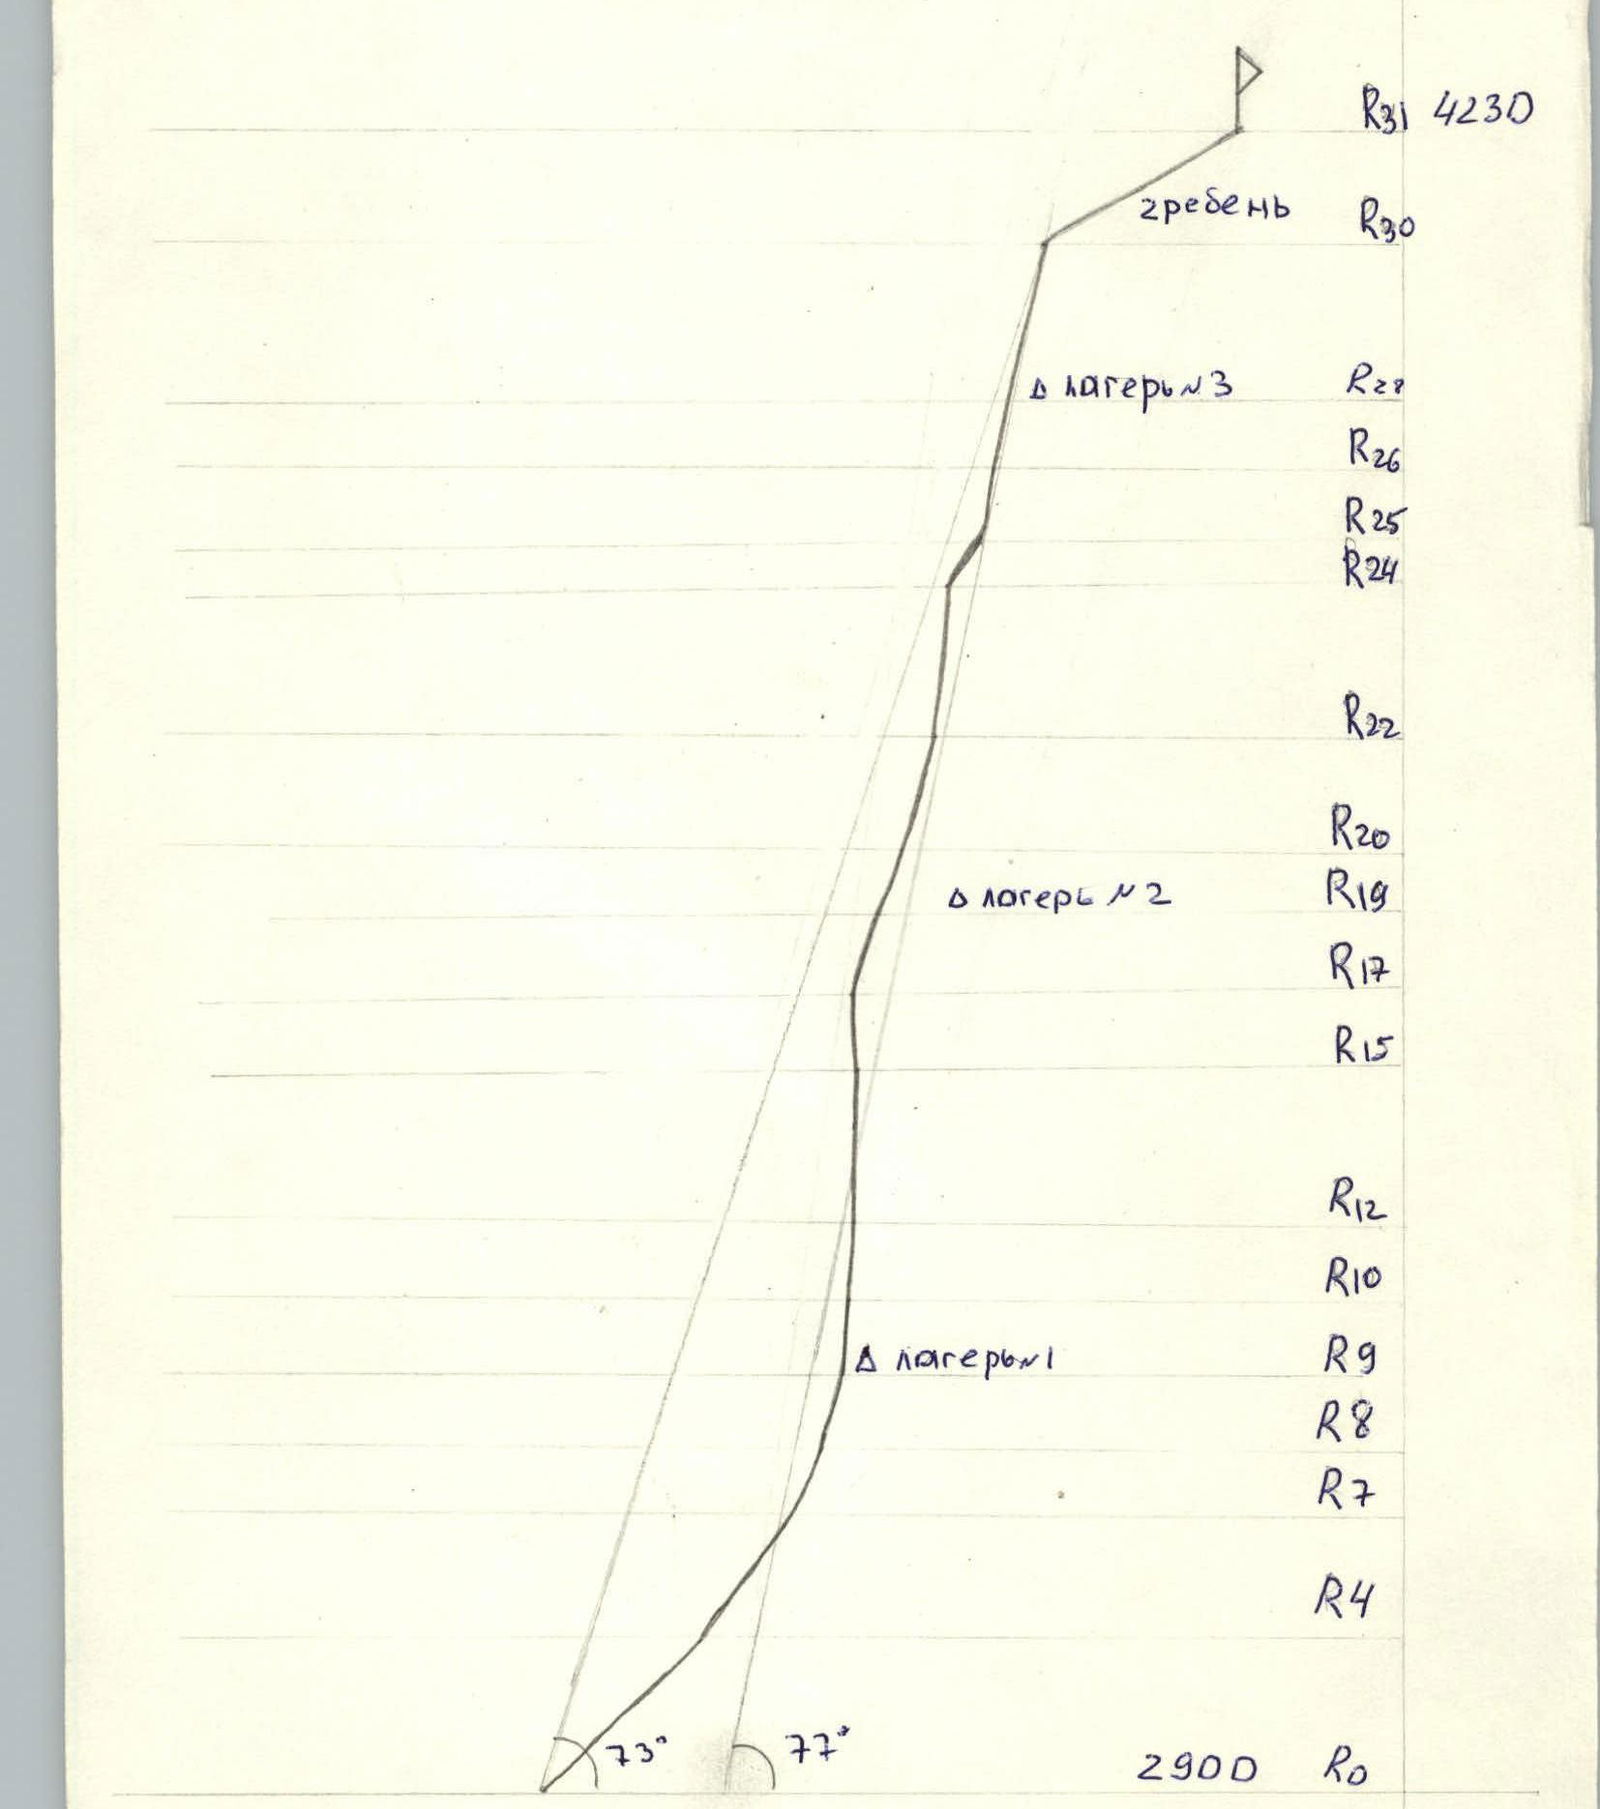 R31 4230
гребень R30
лагерь N3 R28
R26
R25
R24
R22
R20
лагерь N2 R19
R17
R15
R12
R10
лагерь N1 R9
R8
R7
R4
73° 77° 2900 R0